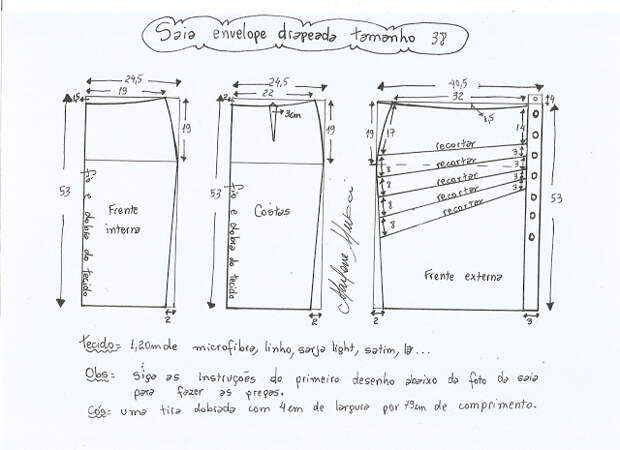 Saia envelope drapeada tamanho 38
24,5
19
1,5
19
53
Frente interna
fio e dobra do tecido
2
24,5
22
2
3cm
19
53
Costas
fio e dobra do tecido
2
Marlene Mukai
40,5
32
4
1,5
19
17
14
recortar
3
8
recortar
3
8
recortar
3
8
recortar
3
8
recortar
53
Frente externa
2
3
Tecido= 1,20m de microfibra, linho, sarja light, satim, ...
Obs: Siga as instruções do primeiro desenho abaixo da foto da saia
para fazer as pregas.
Cós: uma tira dobrada com 4cm de largura por 79cm de comprimento.